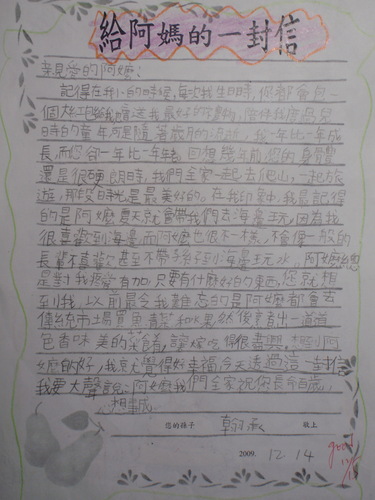 給阿媽的一封信
親愛的阿嬤:
記得在我小的時候,每次我生日時,你都會包一
個大紅包給我
時的童年可是隨著歲月的流逝,我一年比一年成
長,而您卻一年比一年老。回想幾年前您的身體
還是很硬朗時,我們全家一起去爬山,一起旅
遊,那段時光是最美好的。在我印象中,我最記得
的是阿嬤夏天就會帶我們去海邊玩,因為我
很喜歡到海邊,而阿嬤也很不一樣,不會像一般的
長輩不喜歡甚至不帶子孫到海邊玩水,阿嬤總
是對我疼愛有加,只要有什麼好的東西,您就想
到我,以前最令我難忘的是阿嬤都會去
傳統市場買青菜和水果然後煮出一道道
色香味美的菜餚,讓家吃得很盡興,想到阿
嬤的好,我就覺得好幸福,今天透過這一封信
我要大聲說:阿嬤我們全家祝您長命百歲。
您的孫子 翰承 敬上
2009. 12 14
good